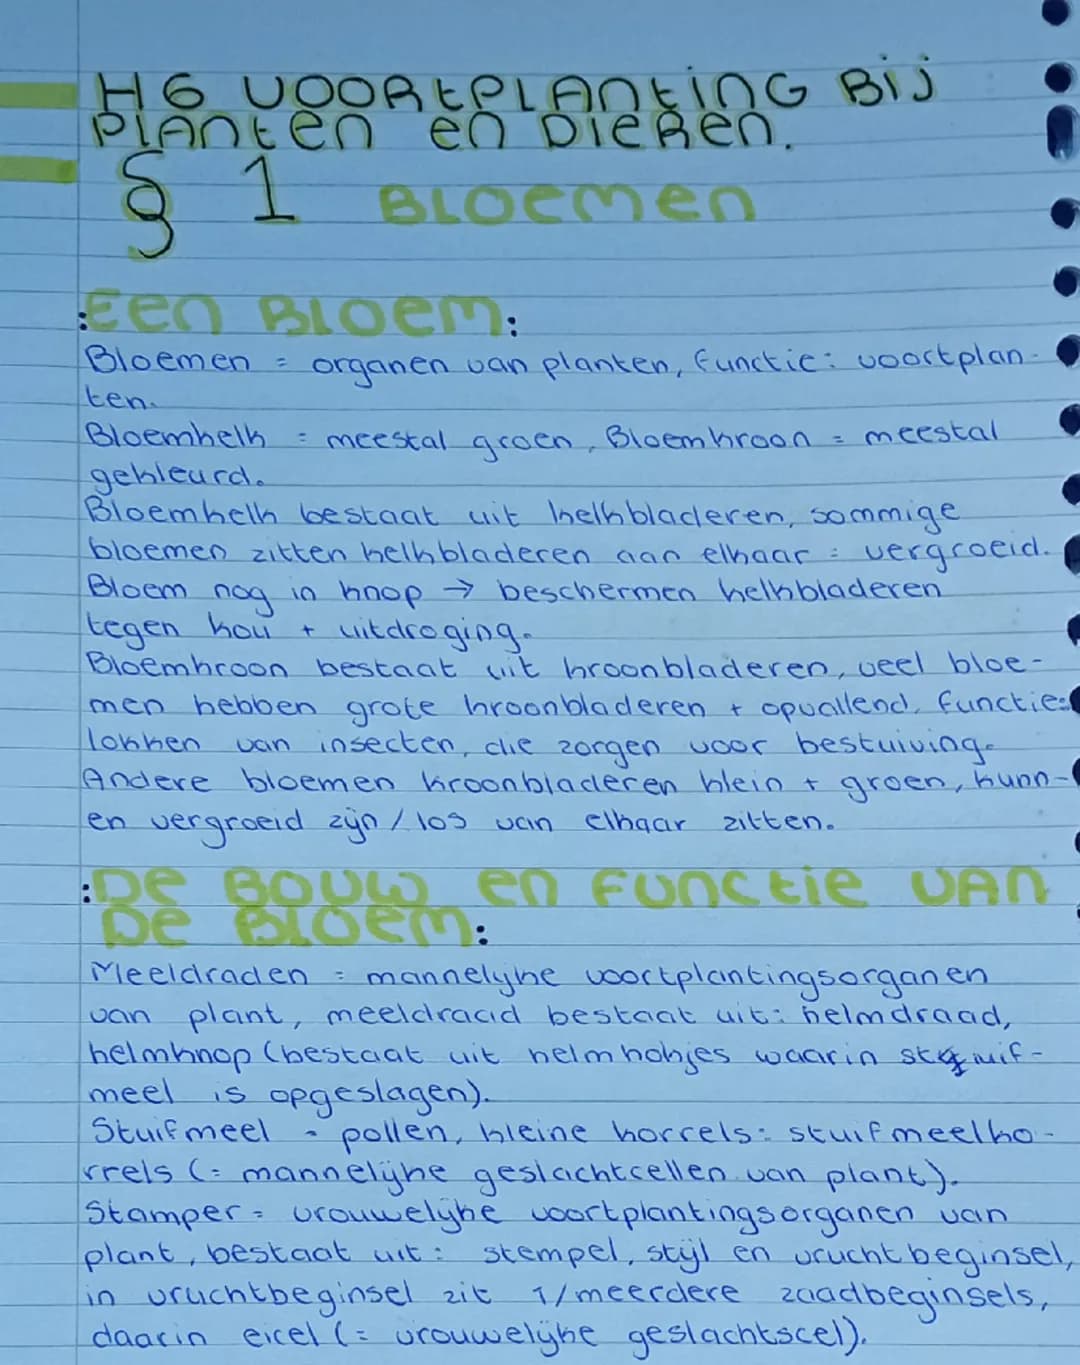 H6 VOORtPLANtiNG Bij
PLANten en DieRen.
§ 1 BLOemen
:Een BLOem:
Bloemen = organen van planten, functie: voortplan-
ten.
Bloemkelk = meestal groen, Bloemkroon = meestal
gekleurd.
Bloemkelk bestaat uit kelkbladeren, sommige
bloemen zitten kelkbladeren aan elkaar = vergroeid.
Bloem nog in knop → beschermen kelkbladeren
tegen kou + uitdroging.
Bloemkroon bestaat uit kroonbladeren, veel bloe-
men hebben grote kroonbladeren + opvallend, functie=
lokken van insecten, die zorgen voor bestuiving.
Andere bloemen kroonbladeren klein + groen, kunn-
en vergroeid zijn / los van elkaar zitten.
:De BOUW en Functie VAN
De BLOem:
Meeldraden = mannelijke voortplantingsorganen
van plant, meeldraad bestaat uit: helmdraad,
helmknop (bestaat uit helmhokjes waarin stuif-
meel is opgeslagen).
Stuifmeel = pollen, kleine korrels: stuifmeelko-
rrels (= mannelijke geslachtcellen van plant).
Stamper = vrouwelijke voortplantingsorganen van
plant, bestaat uit: stempel, stijl en vruchtbeginsel,
in vruchtbeginsel zit 1/meerdere zaadbeginsels,
daarin eicel (= vrouwelijke geslachtscel).